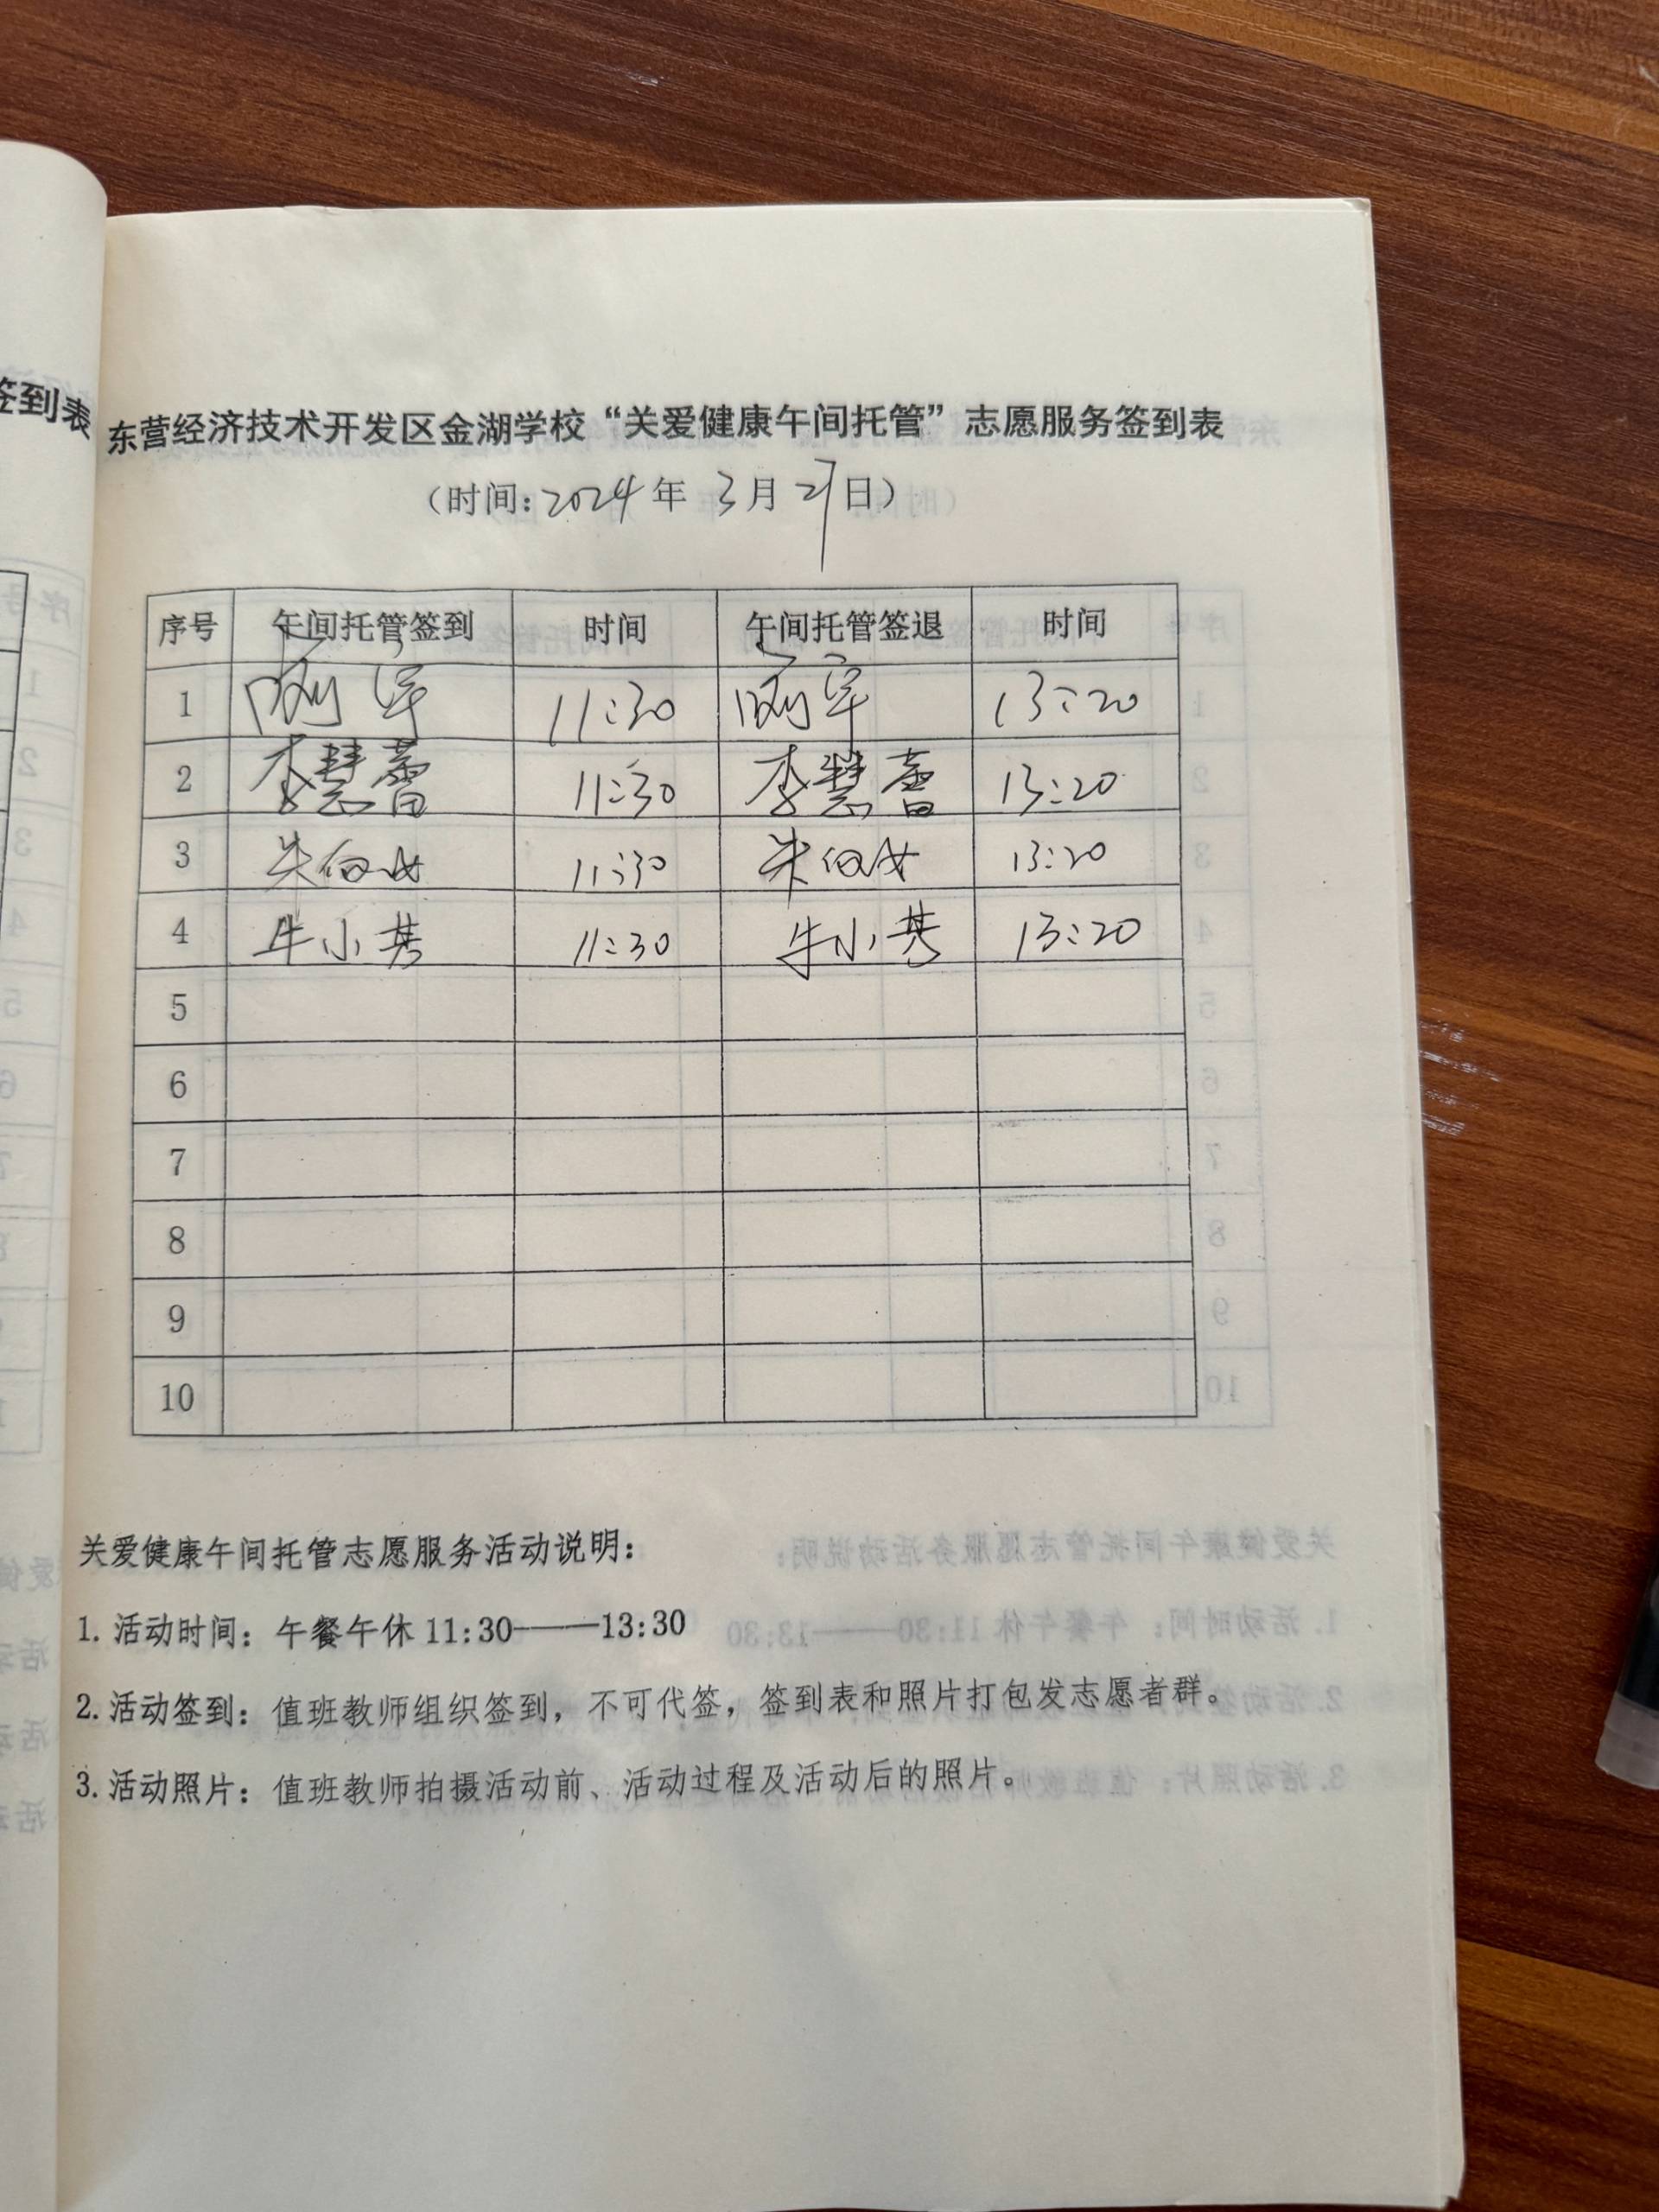 签到表
东营经济技术开发区金湖学校“关爱健康午间托管”志愿服务签到表
（时间:2024年 3月29日）
序号 午间托管签到 时间 午间托管签退 时间
1 11:30 13:20
2 李慧蕾 11:30 李慧蕾 13:20
3 朱 11:30 朱 13:20
4 牛小 11:30 牛小 13:20
5
6
7
8
9
10
关爱健康午间托管志愿服务活动说明：
1. 活动时间：午餐午休 11:30——13:30
2. 活动签到：值班教师组织签到，不可代签，签到表和照片打包发志愿者群。
3. 活动照片：值班教师拍摄活动前、活动过程及活动后的照片。